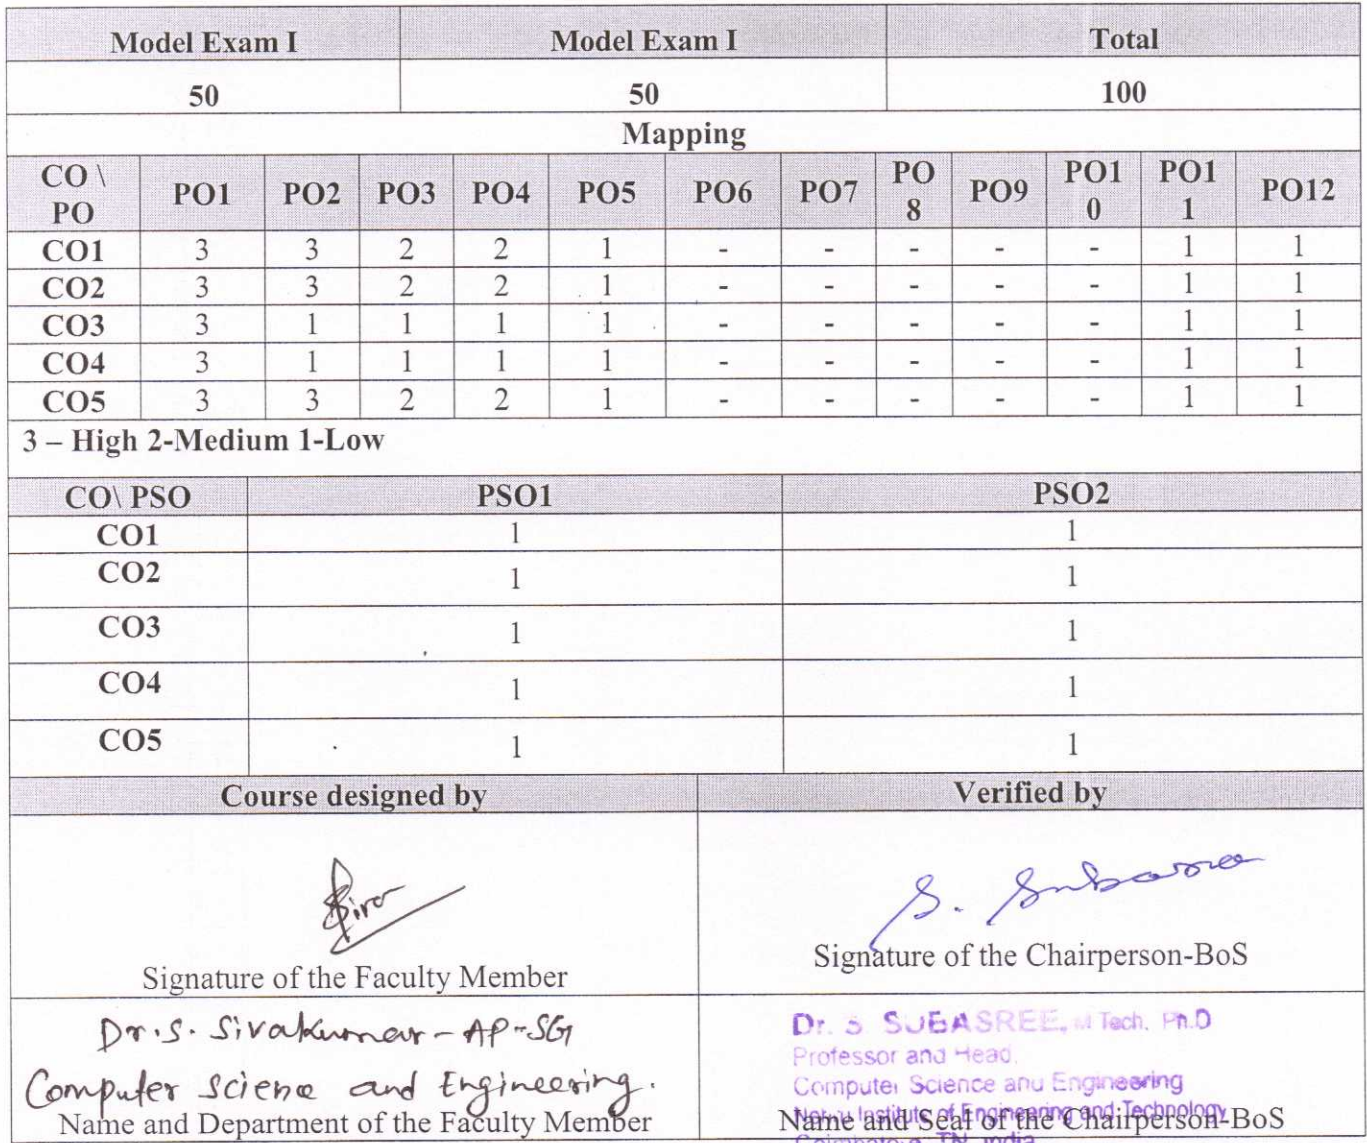 Model Exam I Model Exam I Total
50 50 100
Mapping
CO \ PO PO1 PO2 PO3 PO4 PO5 PO6 PO7 PO 8 PO9 PO1 0 PO1 1 PO12
CO1 3 3 2 2 1 - - - - - 1 1
CO2 3 3 2 2 1 - - - - - 1 1
CO3 3 1 1 1 1 - - - - - 1 1
CO4 3 1 1 1 1 - - - - - 1 1
CO5 3 3 2 2 1 - - - - - 1 1
3 – High 2-Medium 1-Low
CO\ PSO PSO1 PSO2
CO1 1 1
CO2 1 1
CO3 1 1
CO4 1 1
CO5 1 1
Course designed by Verified by
Signature of the Faculty Member
S. Subasree
Signature of the Chairperson-BoS
Dr.S. Sivakumar - AP-SG
Computer Science and Engineering.
Name and Department of the Faculty Member
Dr. S. SUBASREE, M Tech. Ph.D
Professor and Head,
Computer Science and Engineering
Institute of Engineering and Technology
Name and Seal of the Chairperson-BoS
TN, India